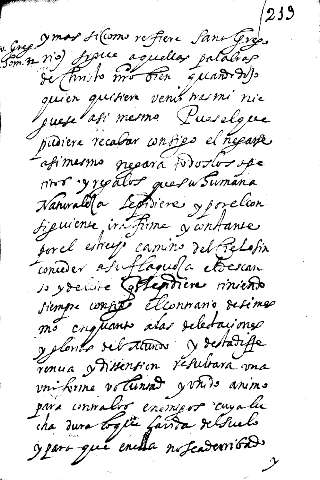 239
S. Greg
hom. 32
y mas si (como refiere Sant Grego
rio) sigue aquellas palabras
de Christo nro bien quando dijo
quien quisiere venir tras mi nie
guese asi mismo Pues el que
pudiere recabar contigo el negarse
asi mismo negara todos los ape
titos y regalos que su humana
Naturaleza le pidiere y por el con
siguiente ira firme y constante
por el estrecho camino del cielo sin
conceder a su flaqueza el descan
so y deleite que le pidiere riniendo
siempre contigo el contrario de si mes
mo en quanto a las delectaciones
y glorias del Mundo y desta dife
rencia y dissension resultara una
uniforme voluntad y unido animo
para contra los enemigos cuya lu
cha dura hasta la vida del suelo
y para que en ella no sea derribado
y